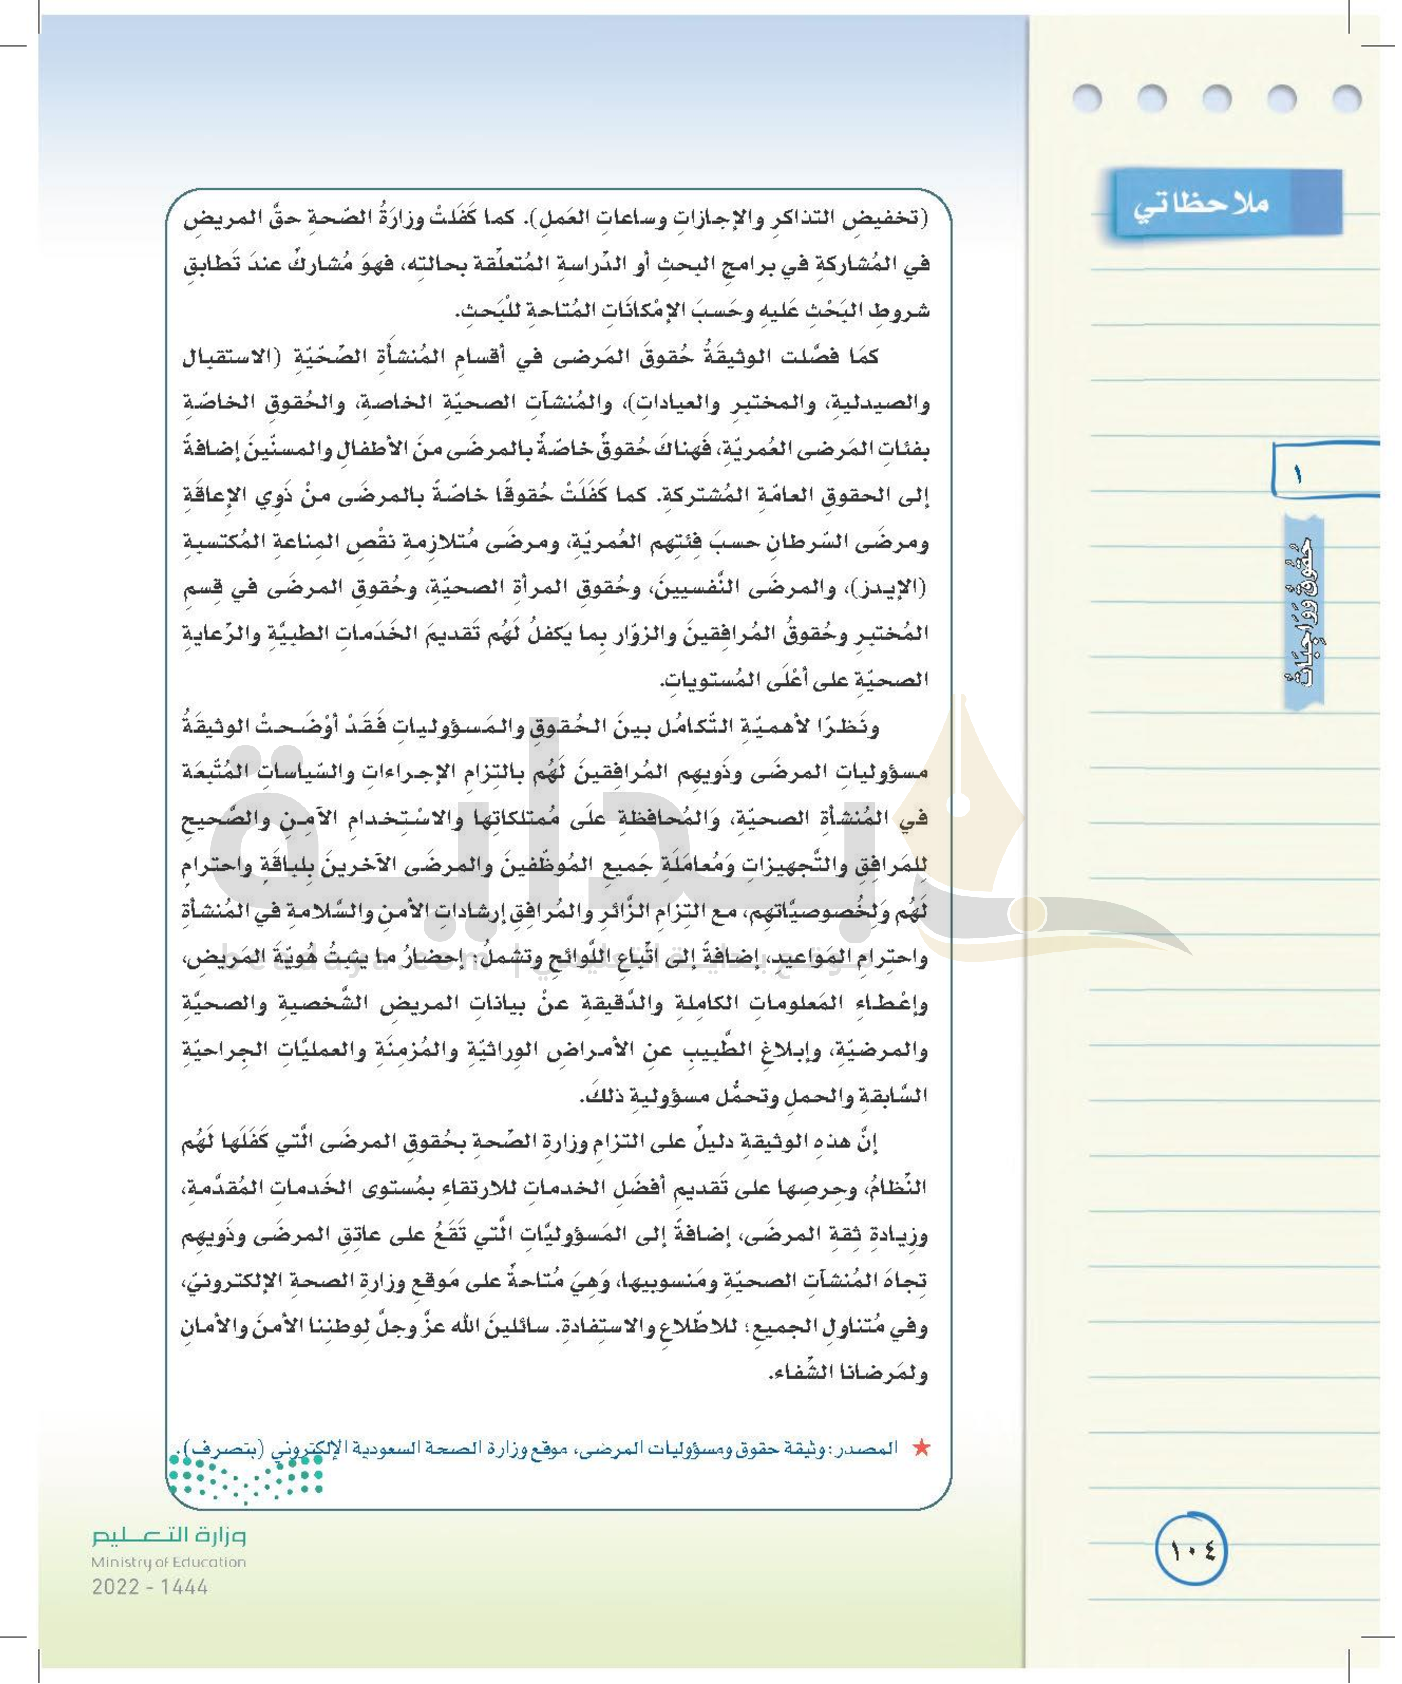 ملاحظاتي
(تخفيضِ التذاكرِ والإجازاتِ وساعاتِ العَملِ). كما كَفَلتْ وزارَةُ الصّحةِ حقَّ المريضِ
في المُشاركةِ في برامجِ البحثِ أو الدِّراسةِ المُتعلِّقة بحالتهِ، فهوَ مُشاركٌ عندَ تَطابقِ
شروطِ البَحْثِ عَليهِ وحَسبَ الإمْكانَاتِ المُتاحةِ للْبَحثِ.
كمَا فصَّلت الوثيقَةُ حُقوقَ المَرضى في أقسامِ المُنشأَةِ الصِّحّيّةِ (الاستقبال
والصيدلية، والمختبرِ والعيادات)، والمُنشآتِ الصحيّةِ الخاصةِ، والحُقوقِ الخاصّةِ
بفئاتِ المَرضى العُمريّةِ، فَهناكَ حُقوقٌ خاصّةٌ بالمرضَى منَ الأطفالِ والمسنّينَ إضافةً
إلى الحقوقِ العامّةِ المُشتركةِ. كما كَفَلَتْ حُقوقًا خاصّةً بالمرضَى منْ ذَوِي الإعاقَةِ
ومرضَى السّرطانِ حسبَ فِئتهِم العُمريّةِ، ومرضَى مُتلازِمةِ نقْصِ المِناعةِ المُكتسبةِ
(الإيدز)، والمرضَى النَّفسيينَ، وحُقوقِ المرأةِ الصحيّةِ، وحُقوقِ المرضَى في قِسمِ
المُختبرِ وحُقوقُ المُرافقينَ والزوّارِ بما يَكفلُ لَهُم تَقديمَ الخَدَماتِ الطبيَّةِ والرِّعايةِ
الصحيّةِ على أعْلَى المُستوياتِ.
ونَظرًا لأهميّةِ التّكامُلِ بينَ الحُقوقِ والمَسؤولياتِ فَقَدْ أوْضَحتْ الوثيقَةُ
مسؤولياتِ المرضَى وذَويهِم المُرافقينَ لَهُم بالتزامِ الإجراءاتِ والسّياساتِ المُتّبعَة
في المُنشأةِ الصحيّةِ، وَالمُحافظةِ علَى مُمتلكاتِها والاسْتِخدامِ الآمِنِ والصَّحيحِ
لِلمَرافِقِ والتَّجهيزاتِ وَمُعامَلَةِ جَميعِ المُوظّفينَ والمرضَى الآخرينَ بِلباقَةٍ واحترامٍ
لَهُم وَلِخُصوصيَّاتهِم، مع التِزامِ الزَّائرِ والمُرافقِ إرشاداتِ الأمنِ والسَّلامةِ في المُنشأةِ
واحترامِ المَواعيدِ، إضافةً إلى اتِّباعِ اللَّوائحِ وتشملُ: إحضارُ ما يثبتُ هُويّةَ المَريضِ،
وإعْطاءِ المَعلوماتِ الكاملةِ والدَّقيقةِ عنْ بياناتِ المريضِ الشَّخصيةِ والصحيَّةِ
والمرضيّةِ، وإبلاغِ الطَّبيبِ عنِ الأمراضِ الوراثيّةِ والمُزمنَةِ والعمليَّاتِ الجراحيّةِ
السَّابقةِ والحملِ وتحمُّلِ مسؤوليةِ ذلكَ.
إنَّ هذهِ الوثيقةِ دليلٌ على التزامِ وزارةِ الصّحةِ بحُقوقِ المرضَى الَّتي كَفَلَها لَهُم
النِّظامُ، وحِرصِها على تَقديمِ أفضَلِ الخدماتِ للارتقاءِ بمُستوى الخَدماتِ المُقدَّمةِ،
وزِيادةِ ثِقةِ المرضَى، إضافةً إلى المَسؤوليَّاتِ الَّتي تَقَعُ على عاتِقِ المرضَى وذَويهِم
تِجاهَ المُنشآتِ الصحيّةِ ومَنسوبيها، وَهيَ مُتاحةٌ على مَوقعِ وزارةِ الصحةِ الإلكترونيّ،
وفي مُتناولِ الجميعِ؛ للاطّلاعِ والاستِفادةِ. سائلينَ الله عزَّ وجلَّ لوطنِنا الأمنَ والأمانِ
ولمَرضانا الشِّفاء.
★ المصدر: وثيقة حقوق ومسؤوليات المرضى، موقع وزارة الصحة السعودية الإلكتروني (بتصرف).
١
حُقُوقٌ وَوَاجِبَاتٌ
بداية
موقع بداية التعليمي | beadaya.com
وزارة التعليم
Ministry of Education
2022 - 1444
١٠٤